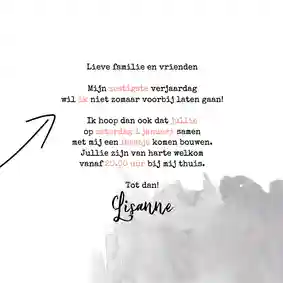 Lieve familie en vrienden
Mijn zestigste verjaardag
wil ik niet zomaar voorbij laten gaan!
Ik hoop dan ook dat jullie
op zaterdag 1 januari samen
met mij een feestje komen bouwen.
Jullie zijn van harte welkom
vanaf 20.00 uur bij mij thuis.
Tot dan!
Lisanne